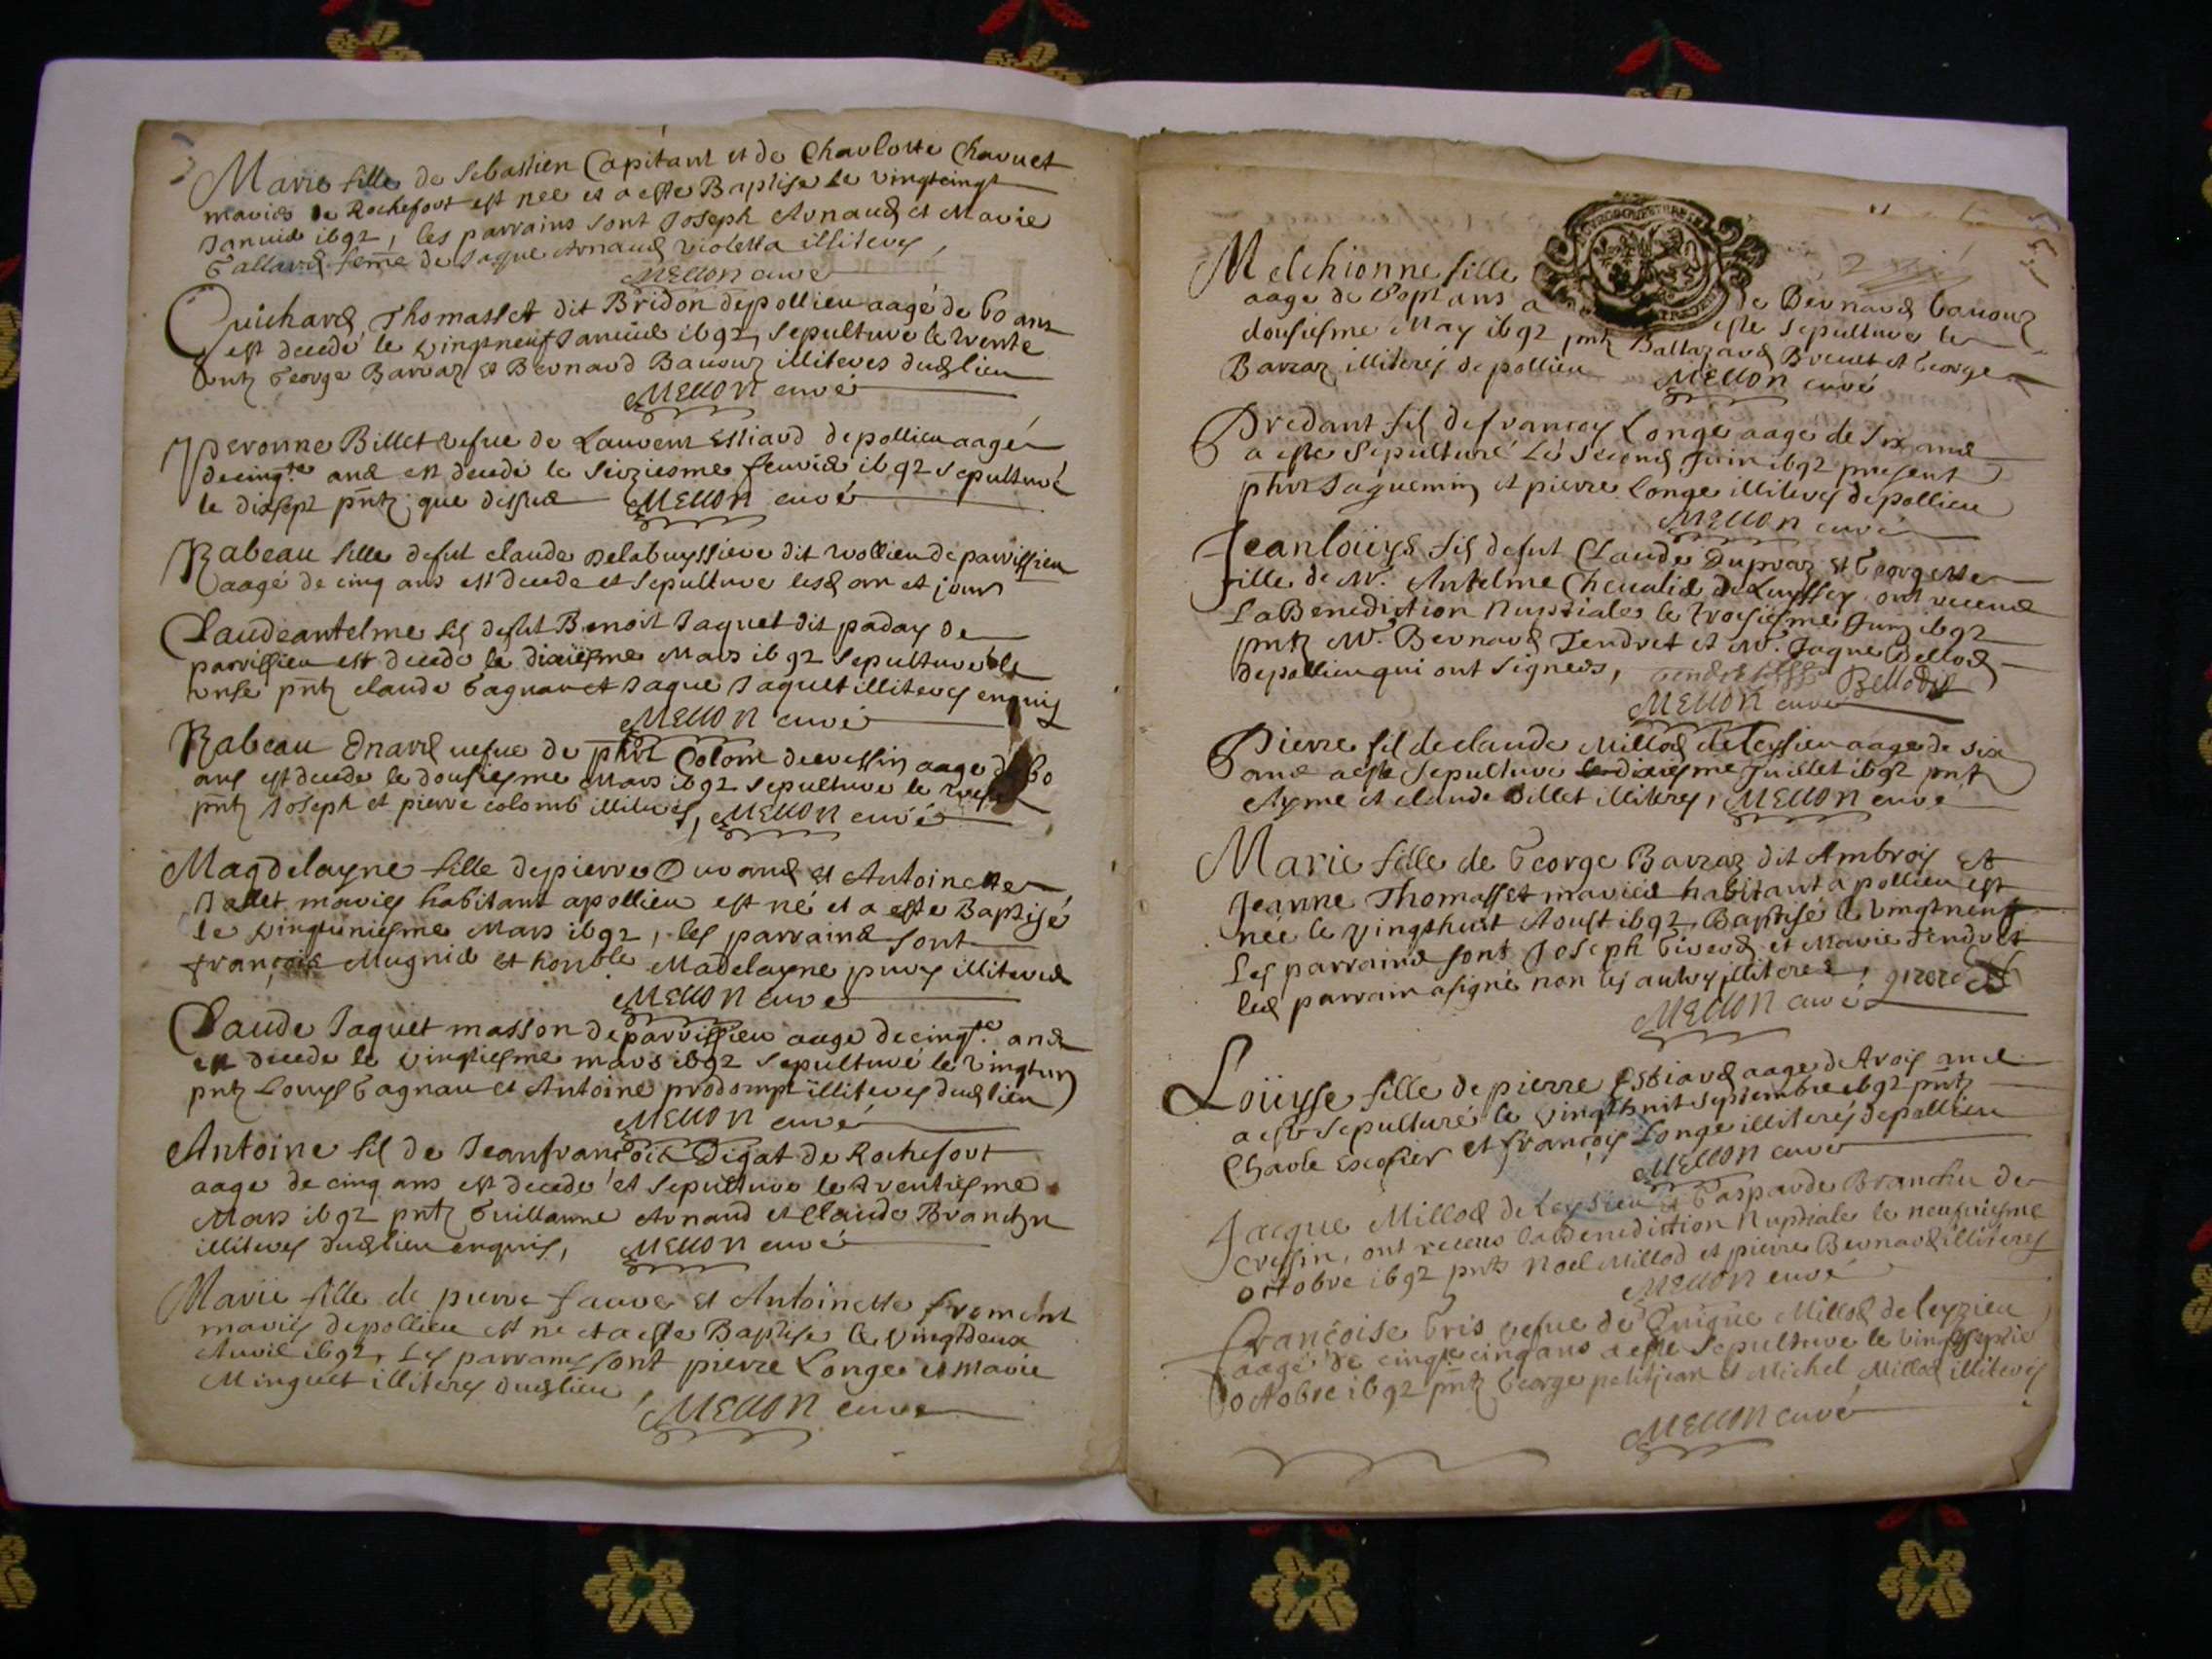 Marie fille de Sebastien Capitant et de Charlotte Chavuet
mariés de Rochefort est nee et a este Baptisé le vingtcinq
Janvier 1692, les parrains sont Joseph Arnaud et Marie
Gallard feme de Jaque Arnaud Violetta illiteres,
MELLON curé
Guichard Thomasset dit Bridon depollieu aagé de 60 ans
est decedé le vingtneuf Janvier 1692, sepulturé le trente
pntz George Barraz et Bernard Bauouz illiteres dudlieu
MELLON curé
Peronne Billet vefue de Laurent Estiard depollieu aagée
decinqte ans est decedé le seiziesme feuvrier 1692 sepulturé
le dixsept pntz que dessus MELLON curé
Rabeau fille defut claude Delabuyssiere dit rollieu de parvissieu
aagé de cinq ans est decede et sepulture lesd an et jour
Claudeantelme fils defut Benoit Jaquet dit paday de
parvissieu est decede le dixiesme Mars 1692 sepulturé le
onse pntz claude Gagnaret Jaque Jaquet illiteres enquis
MELLON curé
Rabeau Enard uefue de phlit Colom decressin aage de 60
ans est decede le dousiesme Mars 1692 sepulture le
pntz Joseph et pierre colomb illiteres, MELLON curé
Magdelayne fille depierre Durand et Antoinette
Jallet mariés habitant apollieu est né et a este Baptisé
le vingtuniesme Mars 1692, les parrains sont
françois Mugnier et honble Madelayne puvy illiteres
MELLON curé
Claude Jaquet masson deparvissieu aage decinqte ans
est decede le vingtiesme mars 1692 sepulturé le vingtun
pntz Louys Gagnau et Antoine prodompt illiteres dudlieu
MELLON curé
Antoine fils de Jeanfrançois Digat de Rochefort
aage de cinq ans est decede et sepulture le trentiesme
Mars 1692 pntz Guillaume Arnaud et Claude Branchu
illiteres dudlieu enquis, MELLON curé
Marie fille de pierre faure et Antoinette froment
mariés depollieu est né et a este Baptise le vingtdeux
Auril 1692, les parrains sont pierre Longe et marie
Minguet illiteres dudlieu,
MELLON curé
Melchionne fille de Bernard Bauouz
aage de sept ans a este sepulture le
dousiesme May 1692, pntz Baltazard Breuet et George
Barraz illiterés depollieu MELLON curé
Predant fils defrançois Longe aagé de six ans
a este sepulturé le second Juin 1692 present
phlit Jaquemin et pierre Longe illiteres depollieu
MELLON curé
Jeanlouys fils defut Claude Dupraz et Georgette
fille de Mr. Antelme Cheualier de Luyssey ont receue
La Benediction Nuptiale le troisiesme Juin 1692
pntz Mr. Bernard Tendret et Mr. Jaque Bellod
depollieu qui ont signers, Tendret Bellod
MELLON curé
Pierre fils de claude Millod deleysieu aage de six
ans a este sepulture le dixiesme Juillet 1692 pntz
Ayme et claude Billet illiteres, MELLON curé
Marie fille de George Barraz dit Ambrois et
Jeanne Thomasset mariés habitant a pollieu est
née le vingthuit Aoust 1692, Baptisé le vingtneuf
Les parrains sont Joseph Girerd et Marie Tendret
led parrain a signé non les autres illiteres, girerd
MELLON curé
Loüyse fille de pierre Estiard aage de trois ans
a este sepulturé le vingthuit septembre 1692 pntz
Charle Escofier et françois Longe illiterés depollieu
MELLON curé
Jacque Millod de Leysieu et Gasparde Branchu de
cressin, ont receus la Benediction Nuptiale le neufuiesme
octobre 1692 pntz Noel Millod et pierre Bernard illiteres
MELLON curé
françoise Gris vefue de Guigue Millod deleyzieu
aage de cinqte cinq ans a este sepulture le vingtseptie
octobre 1692 pntz George petitjean et Michel Millod illiteres
MELLON curé